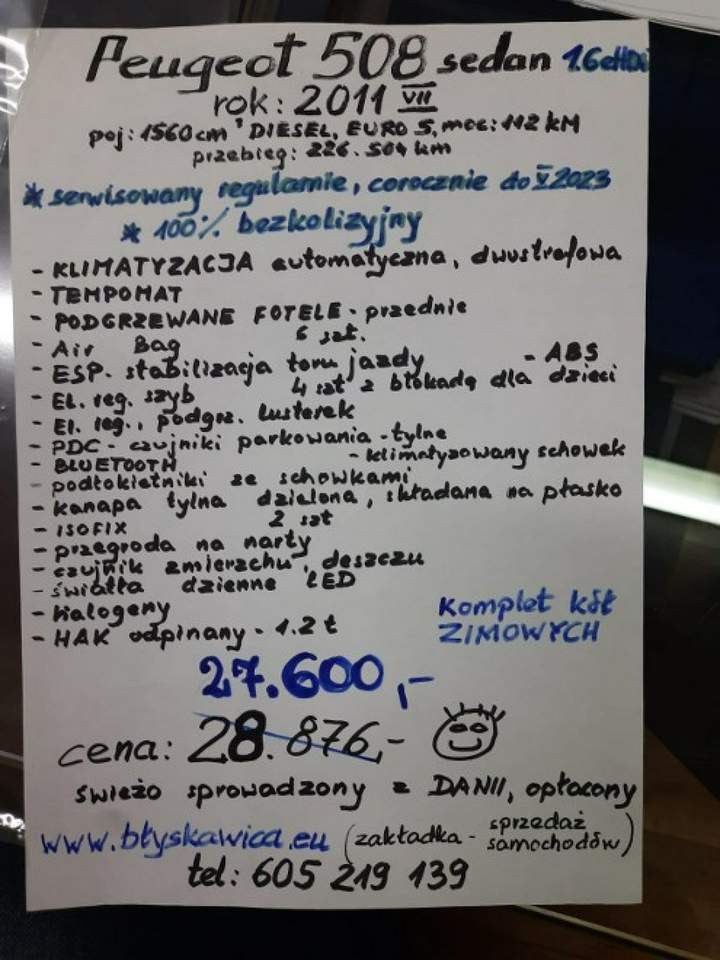 Peugeot 508 sedan 1.6 eHDi
rok: 2011 VII
poj: 1560 cm³ DIESEL, EURO 5, moc: 112 KM
przebieg: 226.504 km
* serwisowany regularnie, corocznie do V 2023
* 100% bezkolizyjny
- KLIMATYZACJA automatyczna, dwustrefowa
- TEMPOMAT
- PODGRZEWANE FOTELE - przednie
- Air Bag 6 szt.
- ESP. stabilizacja toru jazdy - ABS
- El. reg. szyb 4 szt z blokadą dla dzieci
- El. reg., podgrz. lusterek
- PDC - czujniki parkowania - tylne
- BLUETOOTH - klimatyzowany schowek
- podłokietniki ze schowkami
- kanapa tylna dzielona, składana na płasko
- ISOFIX 2 szt
- przegroda na narty
- czujnik zmierzchu, deszczu
- światła dzienne LED
- halogeny
- HAK odpinany - 1.2 t
Komplet kół
ZIMOWYCH
27.600,-
cena: 28.876,-
świeżo sprowadzony z DANII, opłacony
www.błyskawica.eu (zakładka - sprzedaż
samochodów)
tel: 605 219 139